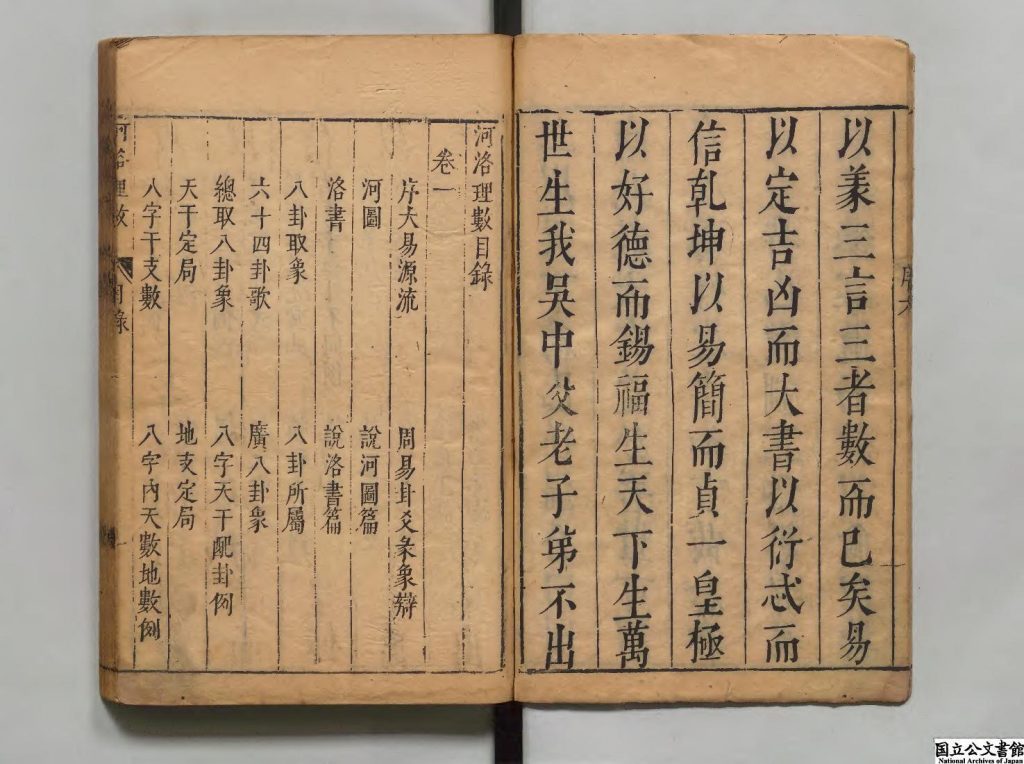 以彖三言三者數而已矣易
以定吉凶而大書以衍忒而
信乾坤以易簡而貞一皇極
以好德而錫福生天下生萬
世生我吳中父老子弟不出
河洛理數目錄
卷一
序大易源流 周易卦爻彖象辯
河圖 說河圖篇
洛書 說洛書篇
八卦取象 八卦所屬
六十四卦歌 廣八卦象
總取八卦象 八字天干配卦例
天干定局 地支定局
八字干支數 八字內天數地數例
河洛理數 目錄 一
国立公文書館
National Archives of Japan